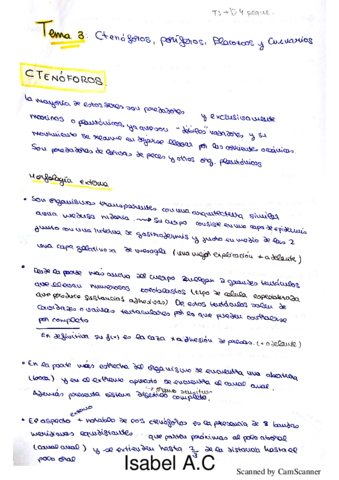 Tema 3: Ctenóforos, poríferos, Placozoos y Cnidarios
CTENÓFOROS.
La mayoría de estos seres son predadores y exclusivamente
marinos o planctónicos, ya que son "débiles" nadadores, y su
movimiento se resume en dejarse llevar por las corrientes oceánicas.
Son predadores de larvas de peces y otros org. planctónicos
Morfología externa
• Son organismos transparentes con una arquitectura similar
a una medusa cnidaria. Su cuerpo consiste en una capa de epidermis
junto con una interna de gastrodermis y justo en medio de las 2
una capa gelatinosa de mesoglea (una mejor explicación + adelante)
• Desde la parte más ancha del cuerpo 2 grandes tentáculos
que llevan numerosos coloblastos (tipo de célula especializada
que produce sustancias adhesivas). De estos tentáculos salen de
cavidades o vainas tentaculares por lo que pueden contraerse
por completo
En definitiva su f(x) es la caza x adhesión de presas. (+ adelante)
• En la parte más estrecha del organismo se encuentra una abertura
(boca) y en el extremo opuesto se encuentra el canal anal.
Además presenta sistema digestivo completo.
• El aspecto externo + notable de los ctenóforos es la presencia de 8 bandas
meridianas equidistantes que parten próximas al polo aboral
(canal anal) y se extienden hasta 2/3 de la distancia hasta el
polo oral
Isabel A.C
Scanned by CamScanner